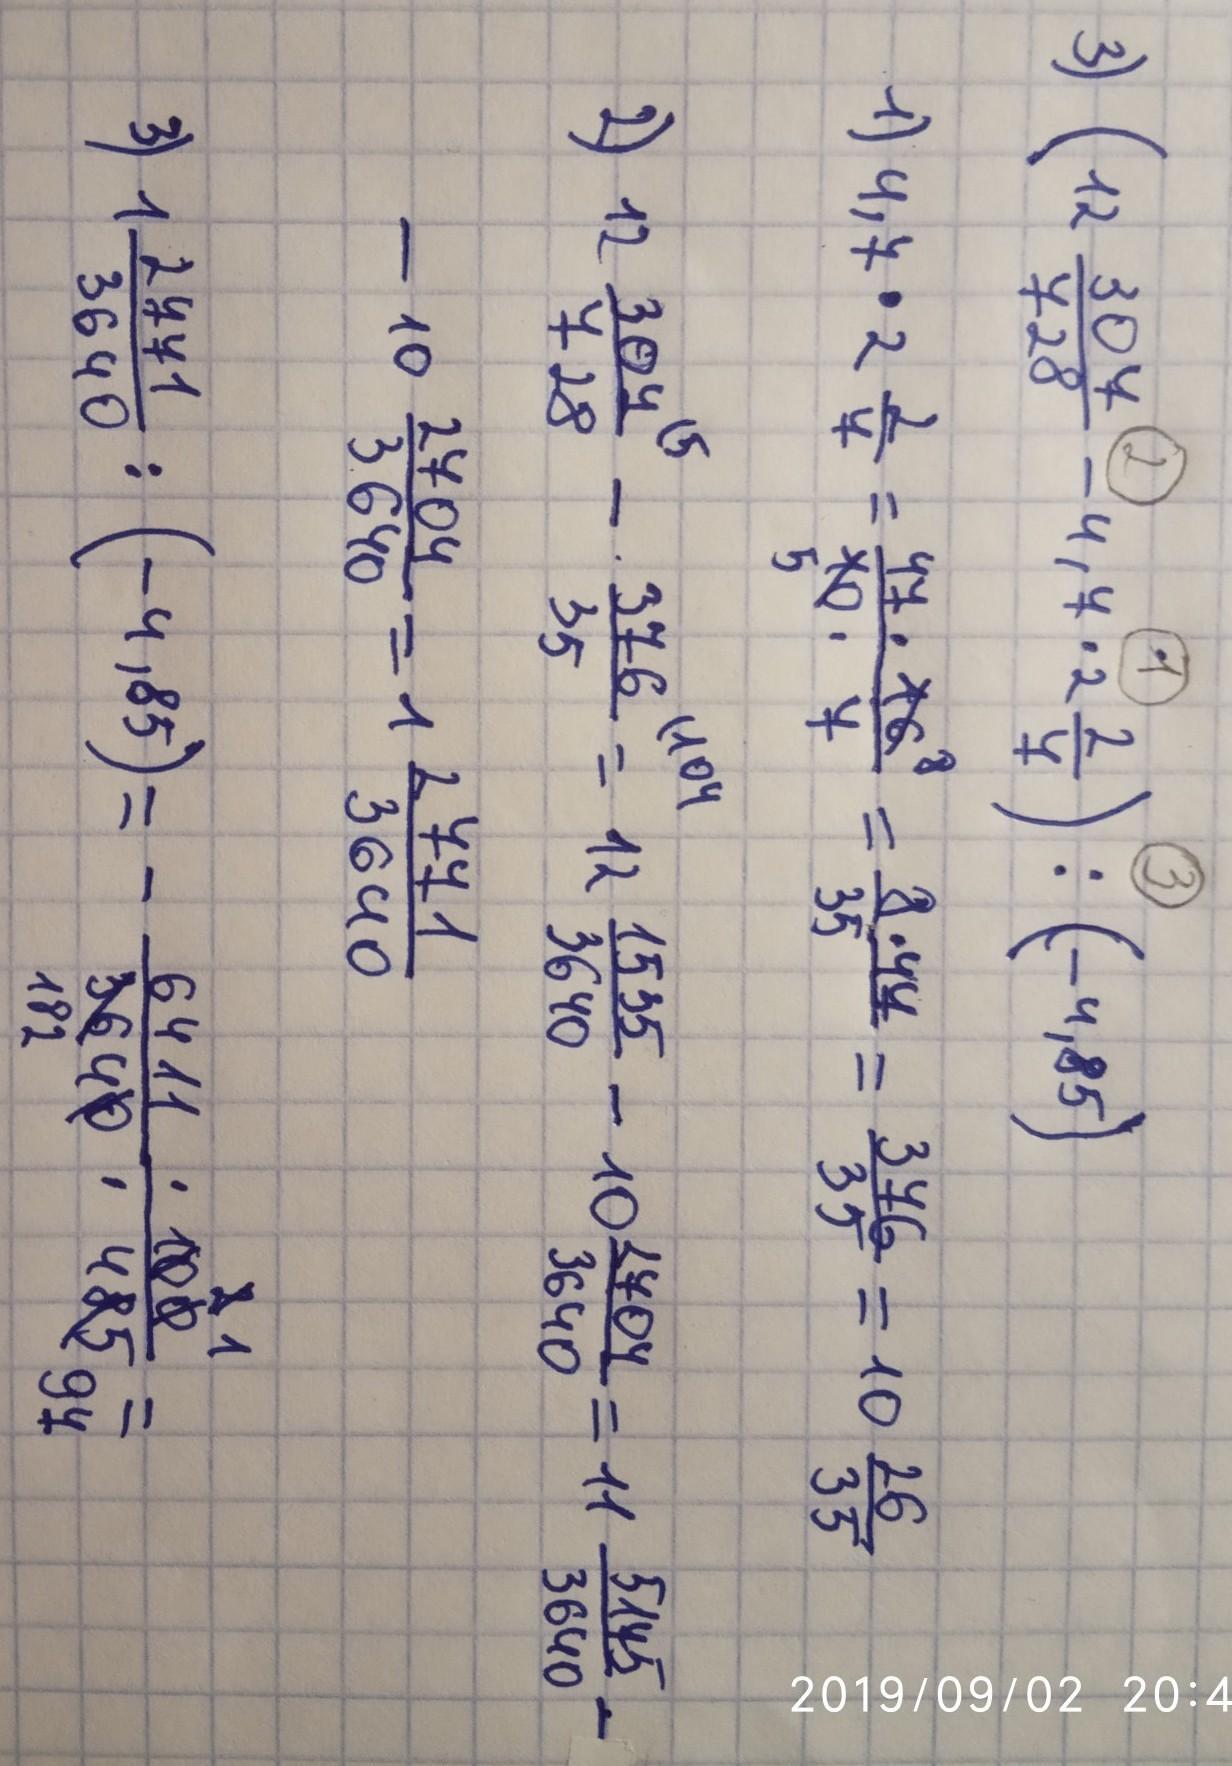 ② ① ③
3) (12 307/728 − 4,7 · 2 2/7) : (−4,85)
1) 4,7 · 2 2/7 = 47 · 16 8/10 5 · 7 = 8 · 47/35 = 376/35 = 10 26/35
2) 12 307/728 (5 − 376/35 (104 = 12 1535/3640 − 10 2704/3640 = 11 5175/3640 −
− 10 2704/3640 = 1 2771/3640
3) 1 2771/3640 : (−4,85) = − 6411 · 100 2 1/3640 182 · 485 97 =
2019/09/02 20:4